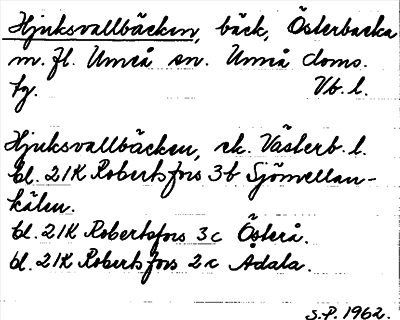 Hjuksvallbäcken, bäck, Österbacka
m. fl. Umeå sn. Umeå doms.
tg. Vb. l.
Hjuksvallbäcken, ek. Västerb. l.
bl. 21K Robertsfors 3b Sjömellan-
kälen.
bl. 21K Robertsfors 3c Österå.
bl. 21K Robertsfors 2c Ådala.
S.P. 1962.